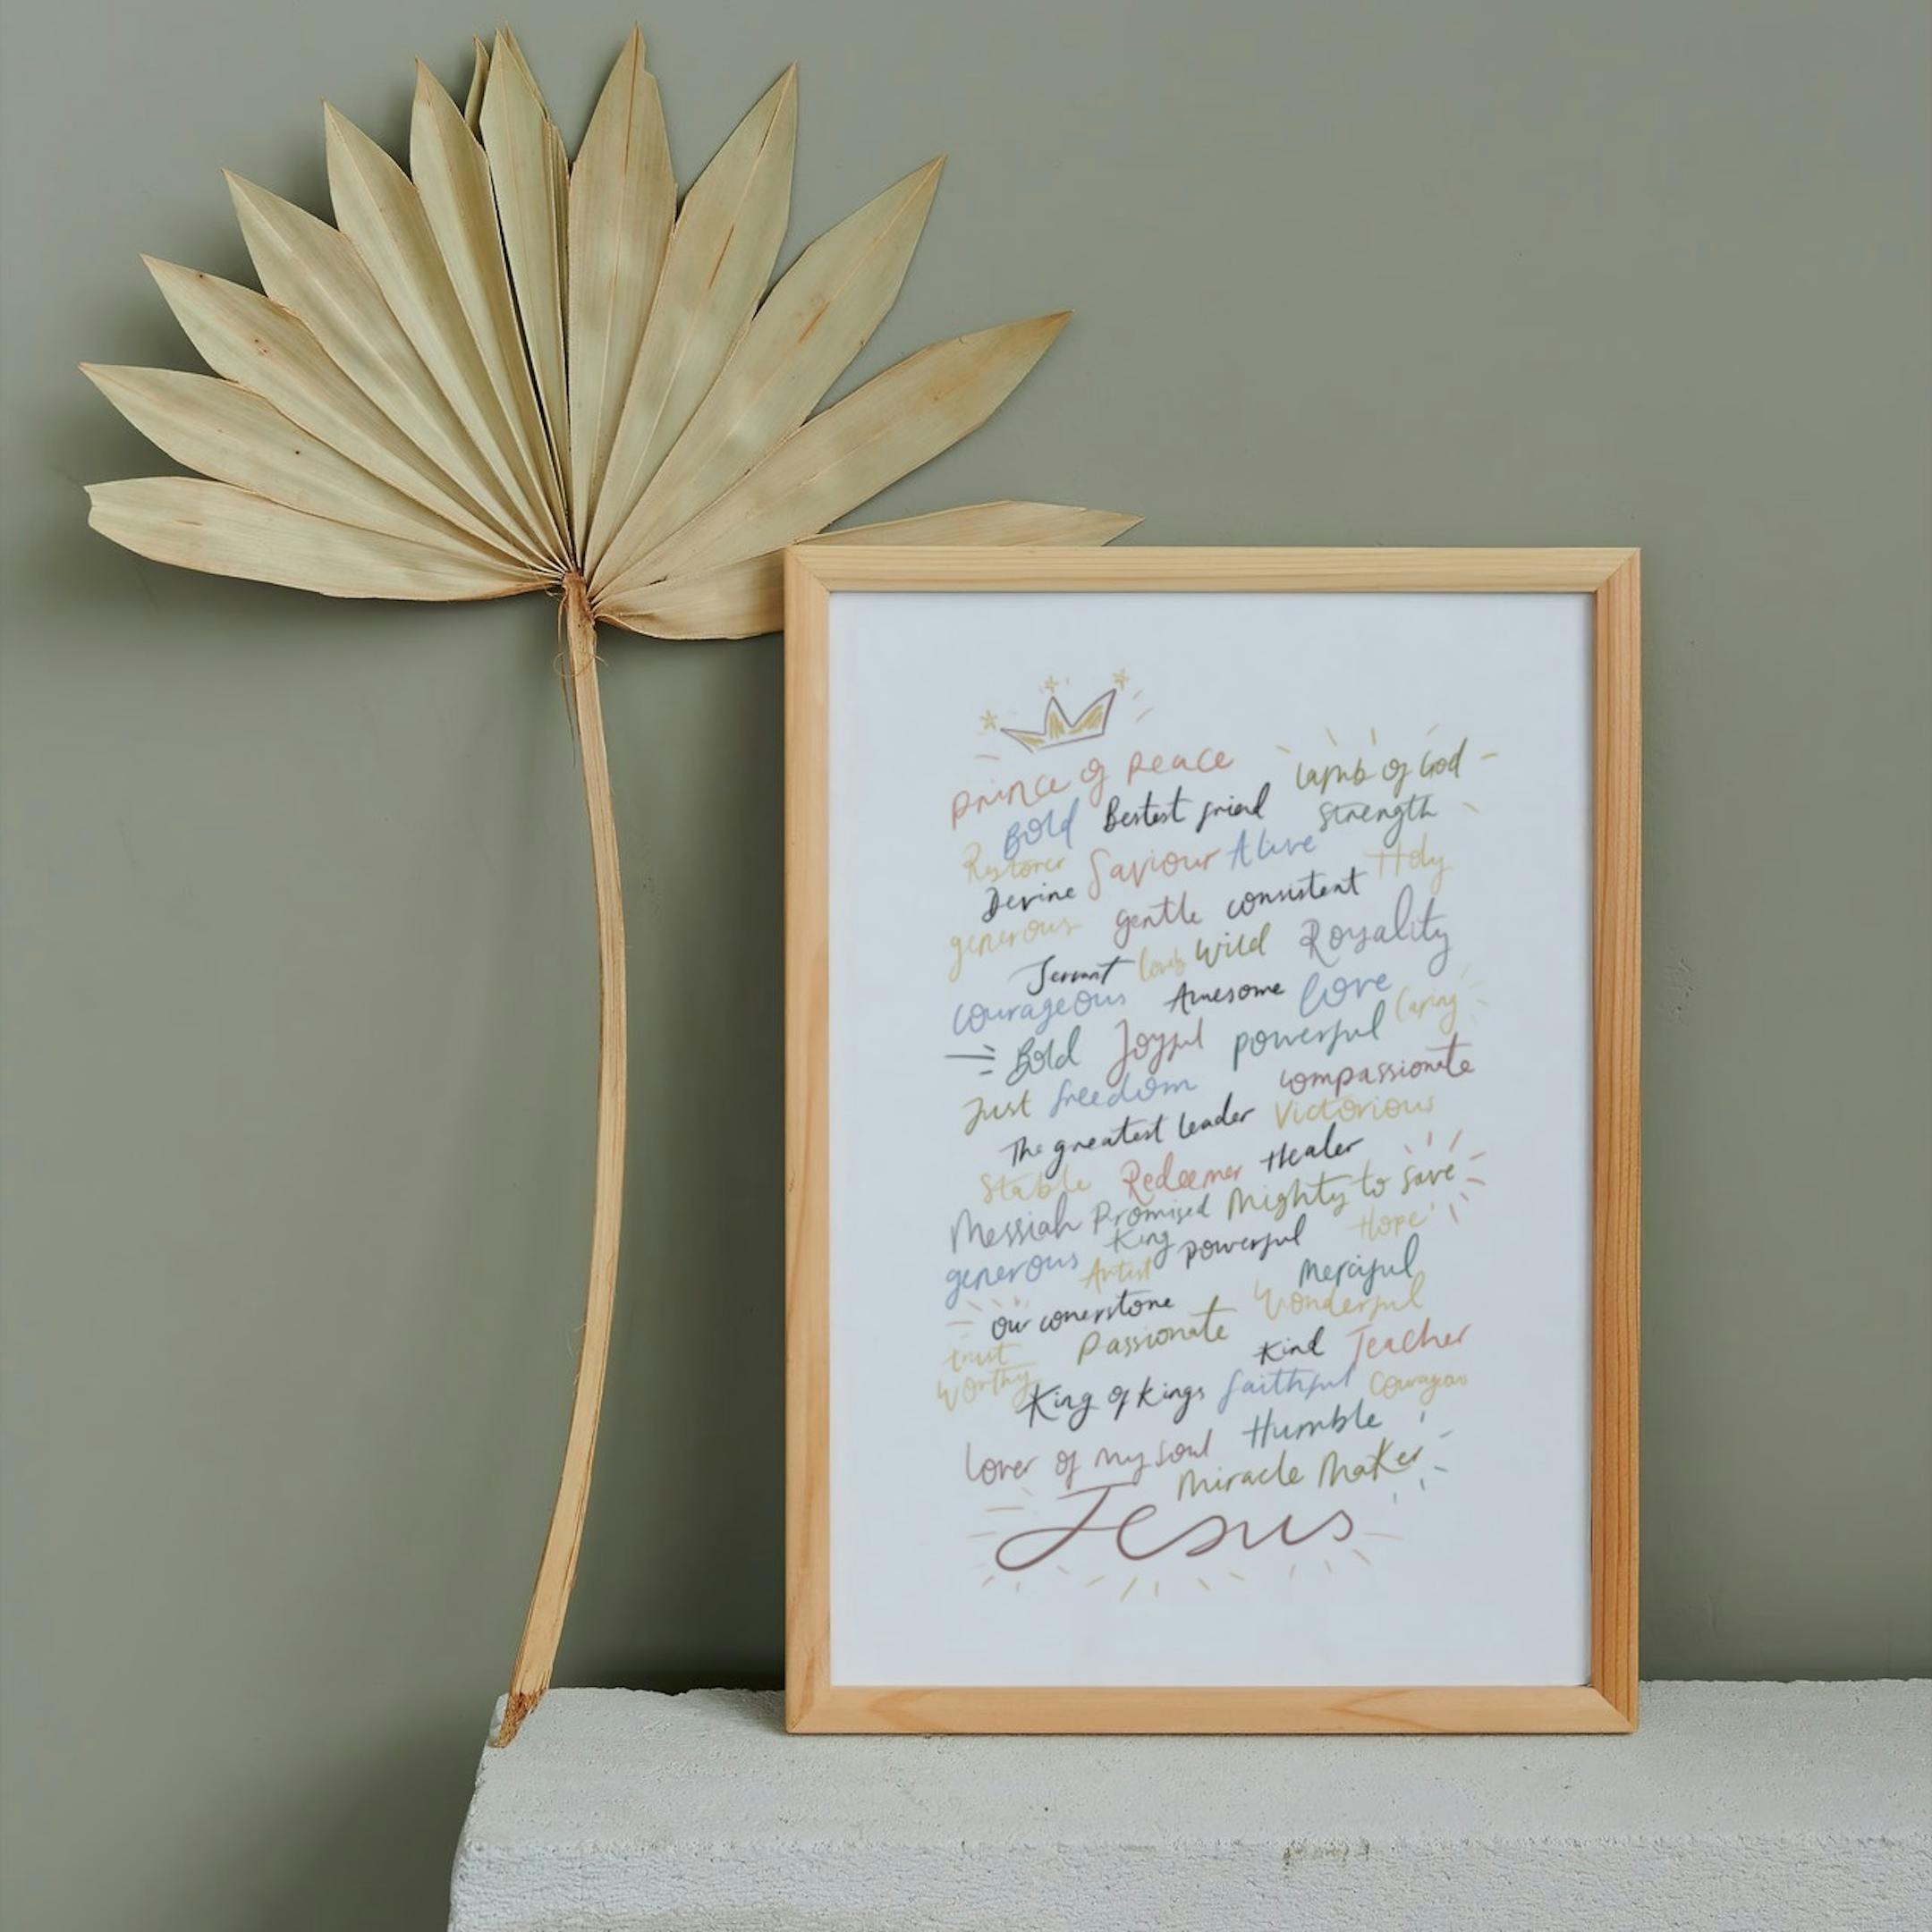 prince of peace Lamb of God
Bold Bestest friend Strength
Restorer Saviour Alive Holy
Devine gentle consistent
generous Wild Royality
Servant lovely
courageous Awesome love Caring
Bold Joyful powerful
Just freedom compassionate
The greatest leader Victorious
Stable Redeemer Healer
Messiah Promised King Mighty to save
generous Artist powerful Hope
our conerstone Merciful
Passionate Wonderful
trust worthy Kind Teacher
King of kings faithful
lover of my soul Humble
Miracle Maker
Jesus